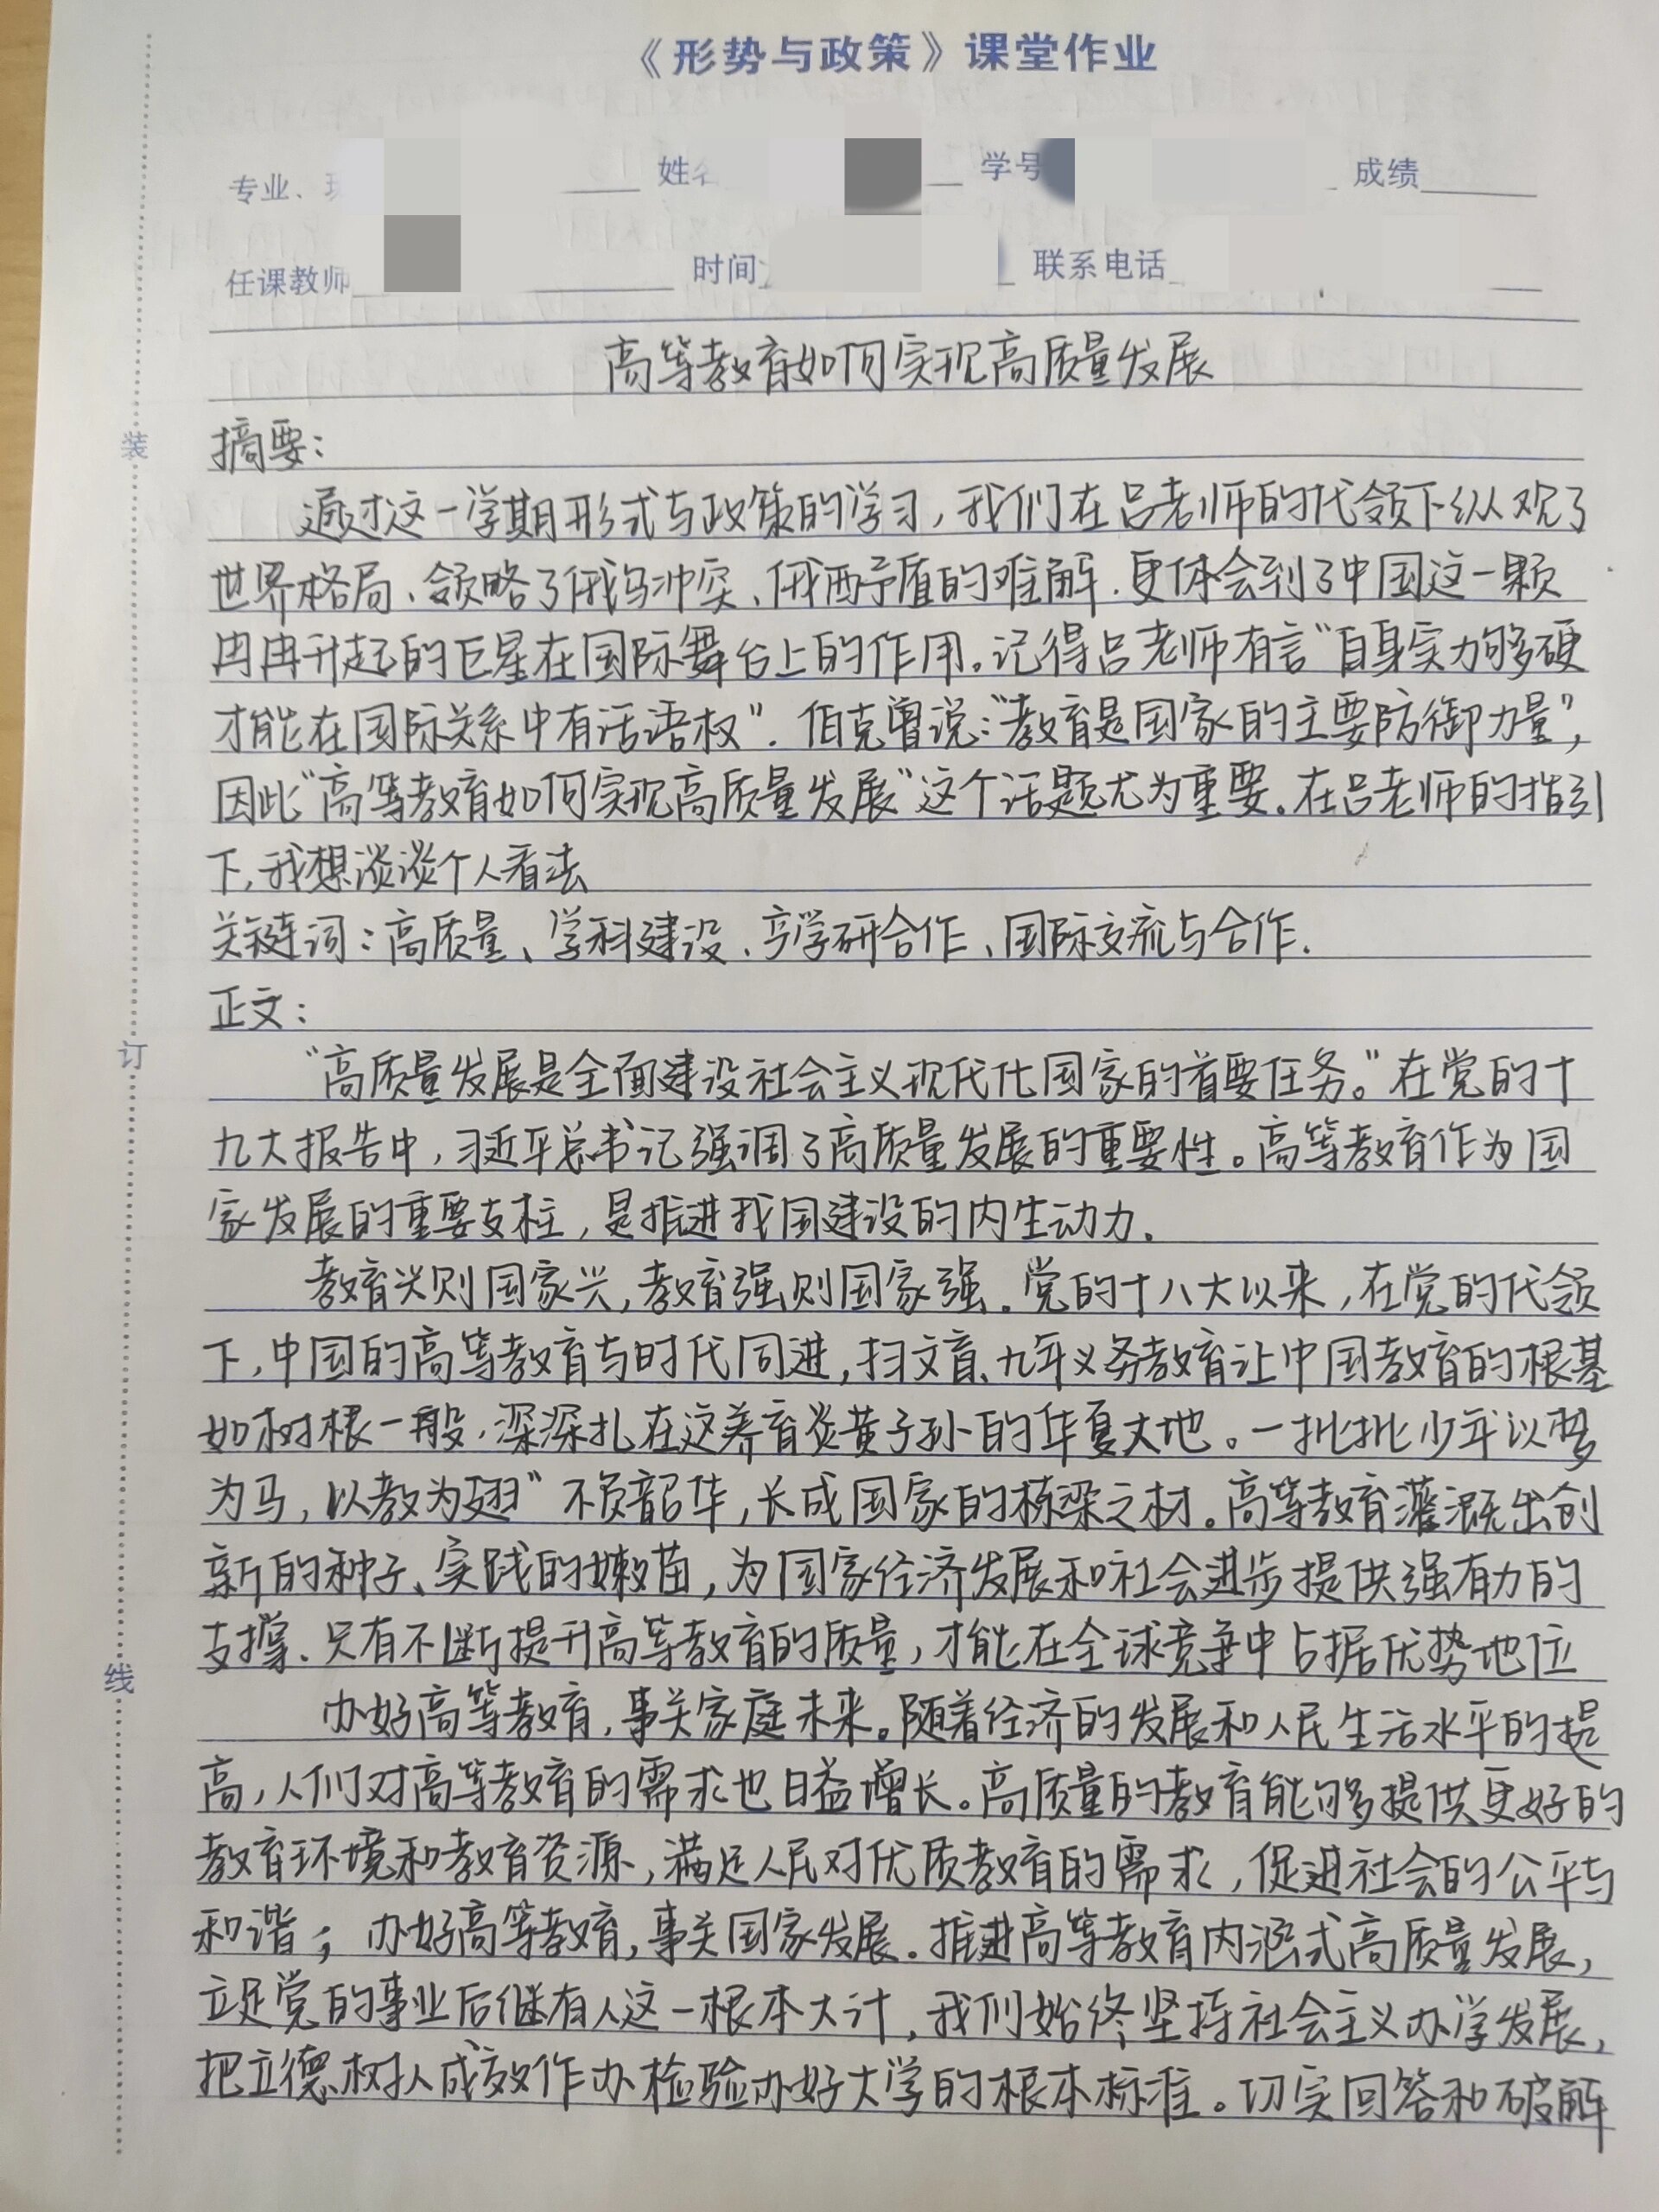 《形势与政策》课堂作业
专业、 姓名 学号 成绩
任课教师 时间 联系电话
高等教育如何实现高质量发展
摘要：
通过这一学期形式与政策的学习，我们在吕老师的代领下纵观了
世界格局、领略了俄乌冲突、俄西矛盾的难解．更体会到了中国这一颗
冉冉升起的巨星在国际舞台上的作用。记得吕老师有言“自身实力够硬
才能在国际关系中有话语权”．伯克曾说：“教育是国家的主要防御力量”，
因此“高等教育如何实现高质量发展”这个话题尤为重要。在吕老师的指引
下，我想谈谈个人看法
关键词：高质量、学科建设、产学研合作、国际交流与合作．
正文：
“高质量发展是全面建设社会主义现代化国家的首要任务。”在党的十
九大报告中，习近平总书记强调了高质量发展的重要性。高等教育作为国
家发展的重要支柱，是推进我国建设的内生动力．
教育兴则国家兴，教育强则国家强．党的十八大以来，在党的代领
下，中国的高等教育与时代同进，扫文盲、九年义务教育让中国教育的根基
如树根一般，深深扎在这养育炎黄子孙的华夏大地。一批批少年以梦
为马，以教为翅”不负韶华，长成国家的栋梁之材。高等教育灌溉出创
新的种子、实践的嫩苗，为国家经济发展和社会进步提供强有力的
支撑．只有不断提升高等教育的质量，才能在全球竞争中占据优势地位
办好高等教育，事关家庭未来。随着经济的发展和人民生活水平的提
高，人们对高等教育的需求也日益增长。高质量的教育能够提供更好的
教育环境和教育资源，满足人民对优质教育的需求，促进社会的公平与
和谐；办好高等教育，事关国家发展．推进高等教育内涵式高质量发展，
立足党的事业后继有人这一根本大计，我们始终坚持社会主义办学发展，
把立德树人成效作办检验办好大学的根本标准。切实回答和破解
装
订
线